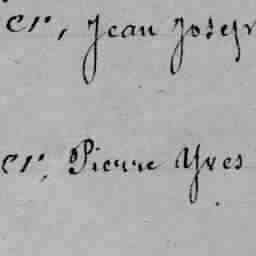 er, Jean Joseph
er, Pierre Yves